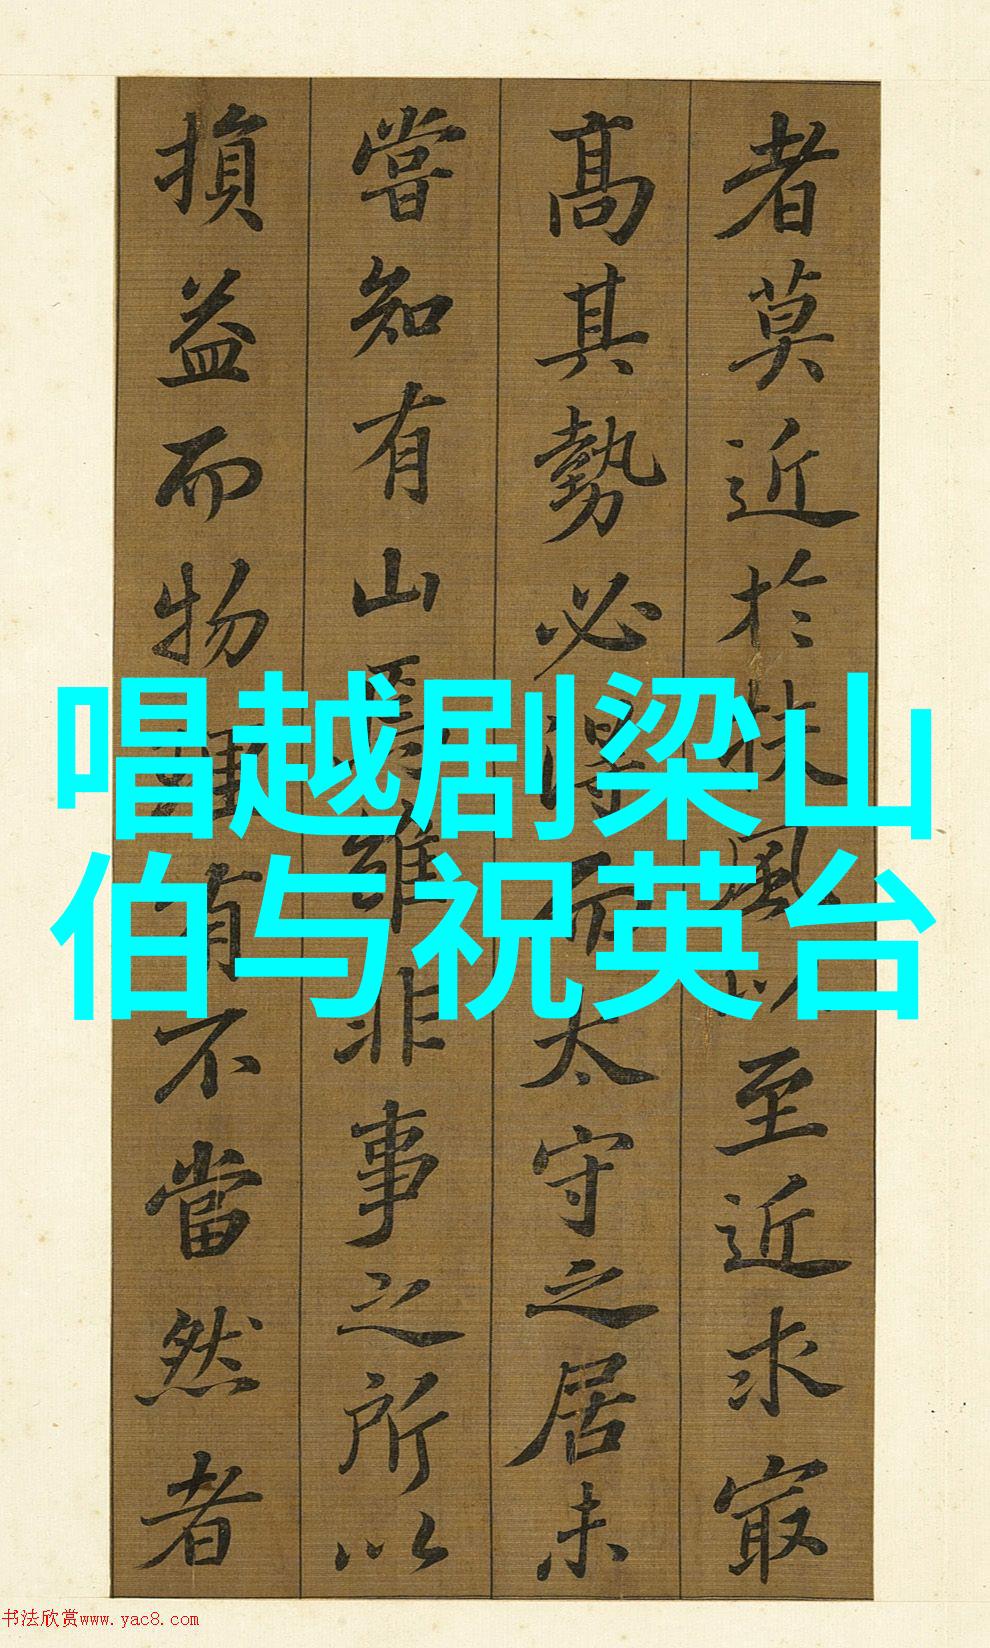 唱越剧梁山
伯与祝英台
者莫近於扶風以至近求㝡
髙其勢必得而太守之居未
嘗知有山焉雖非事之所以
損益而物理有不當然者
书法欣赏www.yac8.com